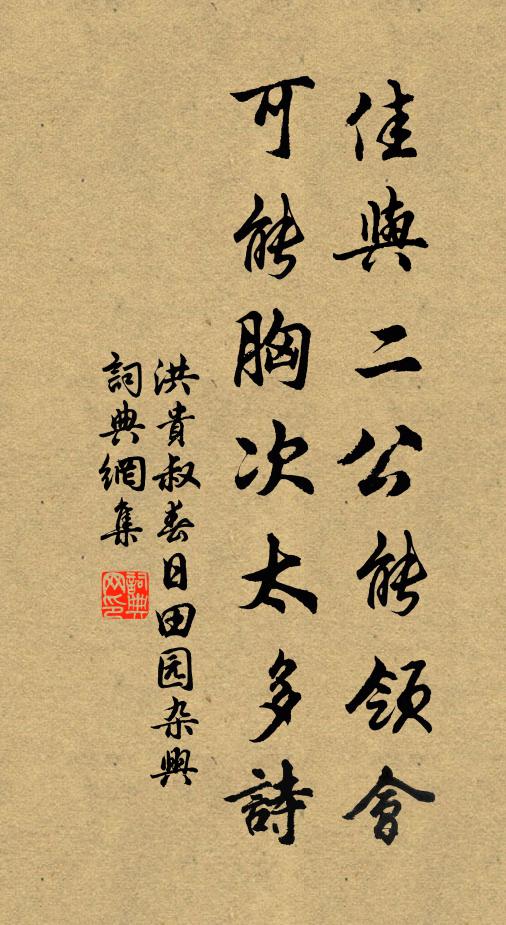 佳與二公能領會
可能胸次太多詩
洪貴叔春日田园杂興
詞典網集
詞典网印